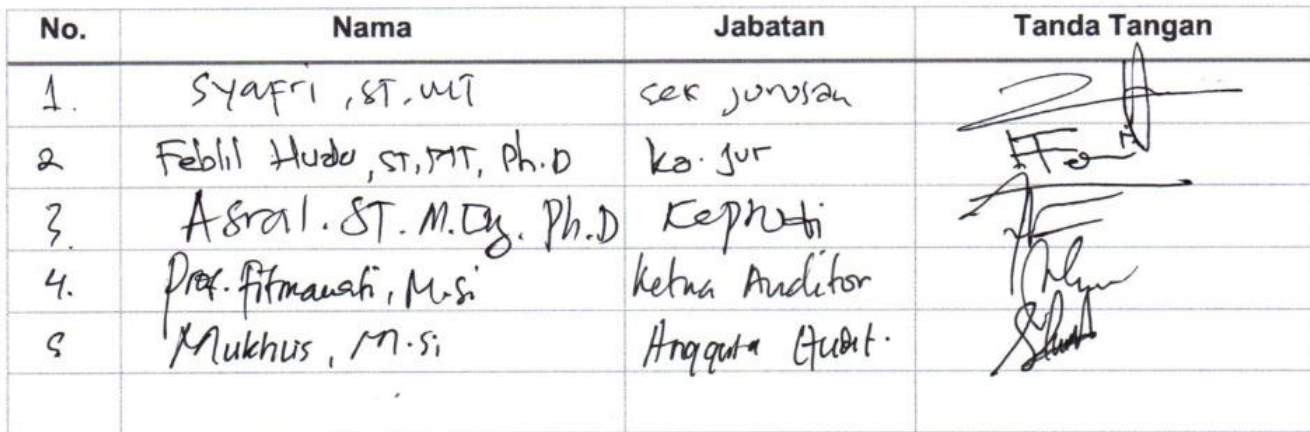 No. Nama Jabatan Tanda Tangan
1. Syafri, ST. MT sek jurusan
2 Feblil Huda, ST, MT, Ph.D ka. jur
3. Asral. ST. M.Eng. Ph.D
4. Prof. Fitmawati, M.Si Ketua Auditor
5 Mukhlis, M.Si Anggota